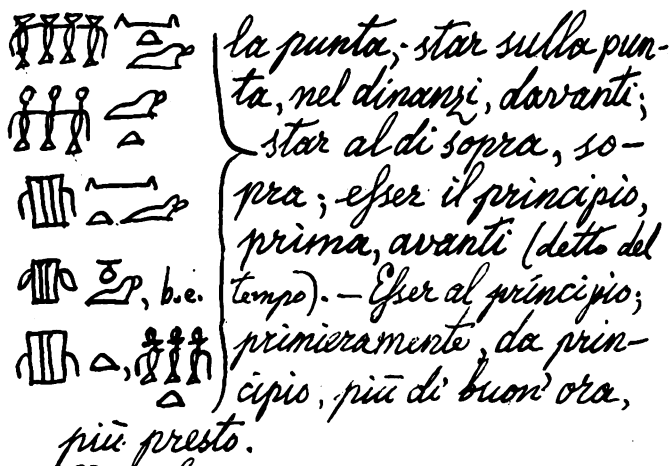 la punta,- star sulla pun-
ta, nel dinanzi, davanti;
star al di sopra, so-
pra; esser il principio,
prima, avanti (detto del
b.e. tempo). — Esser al principio;
primieramente, da prin-
cipio, più di buon' ora,
più presto.